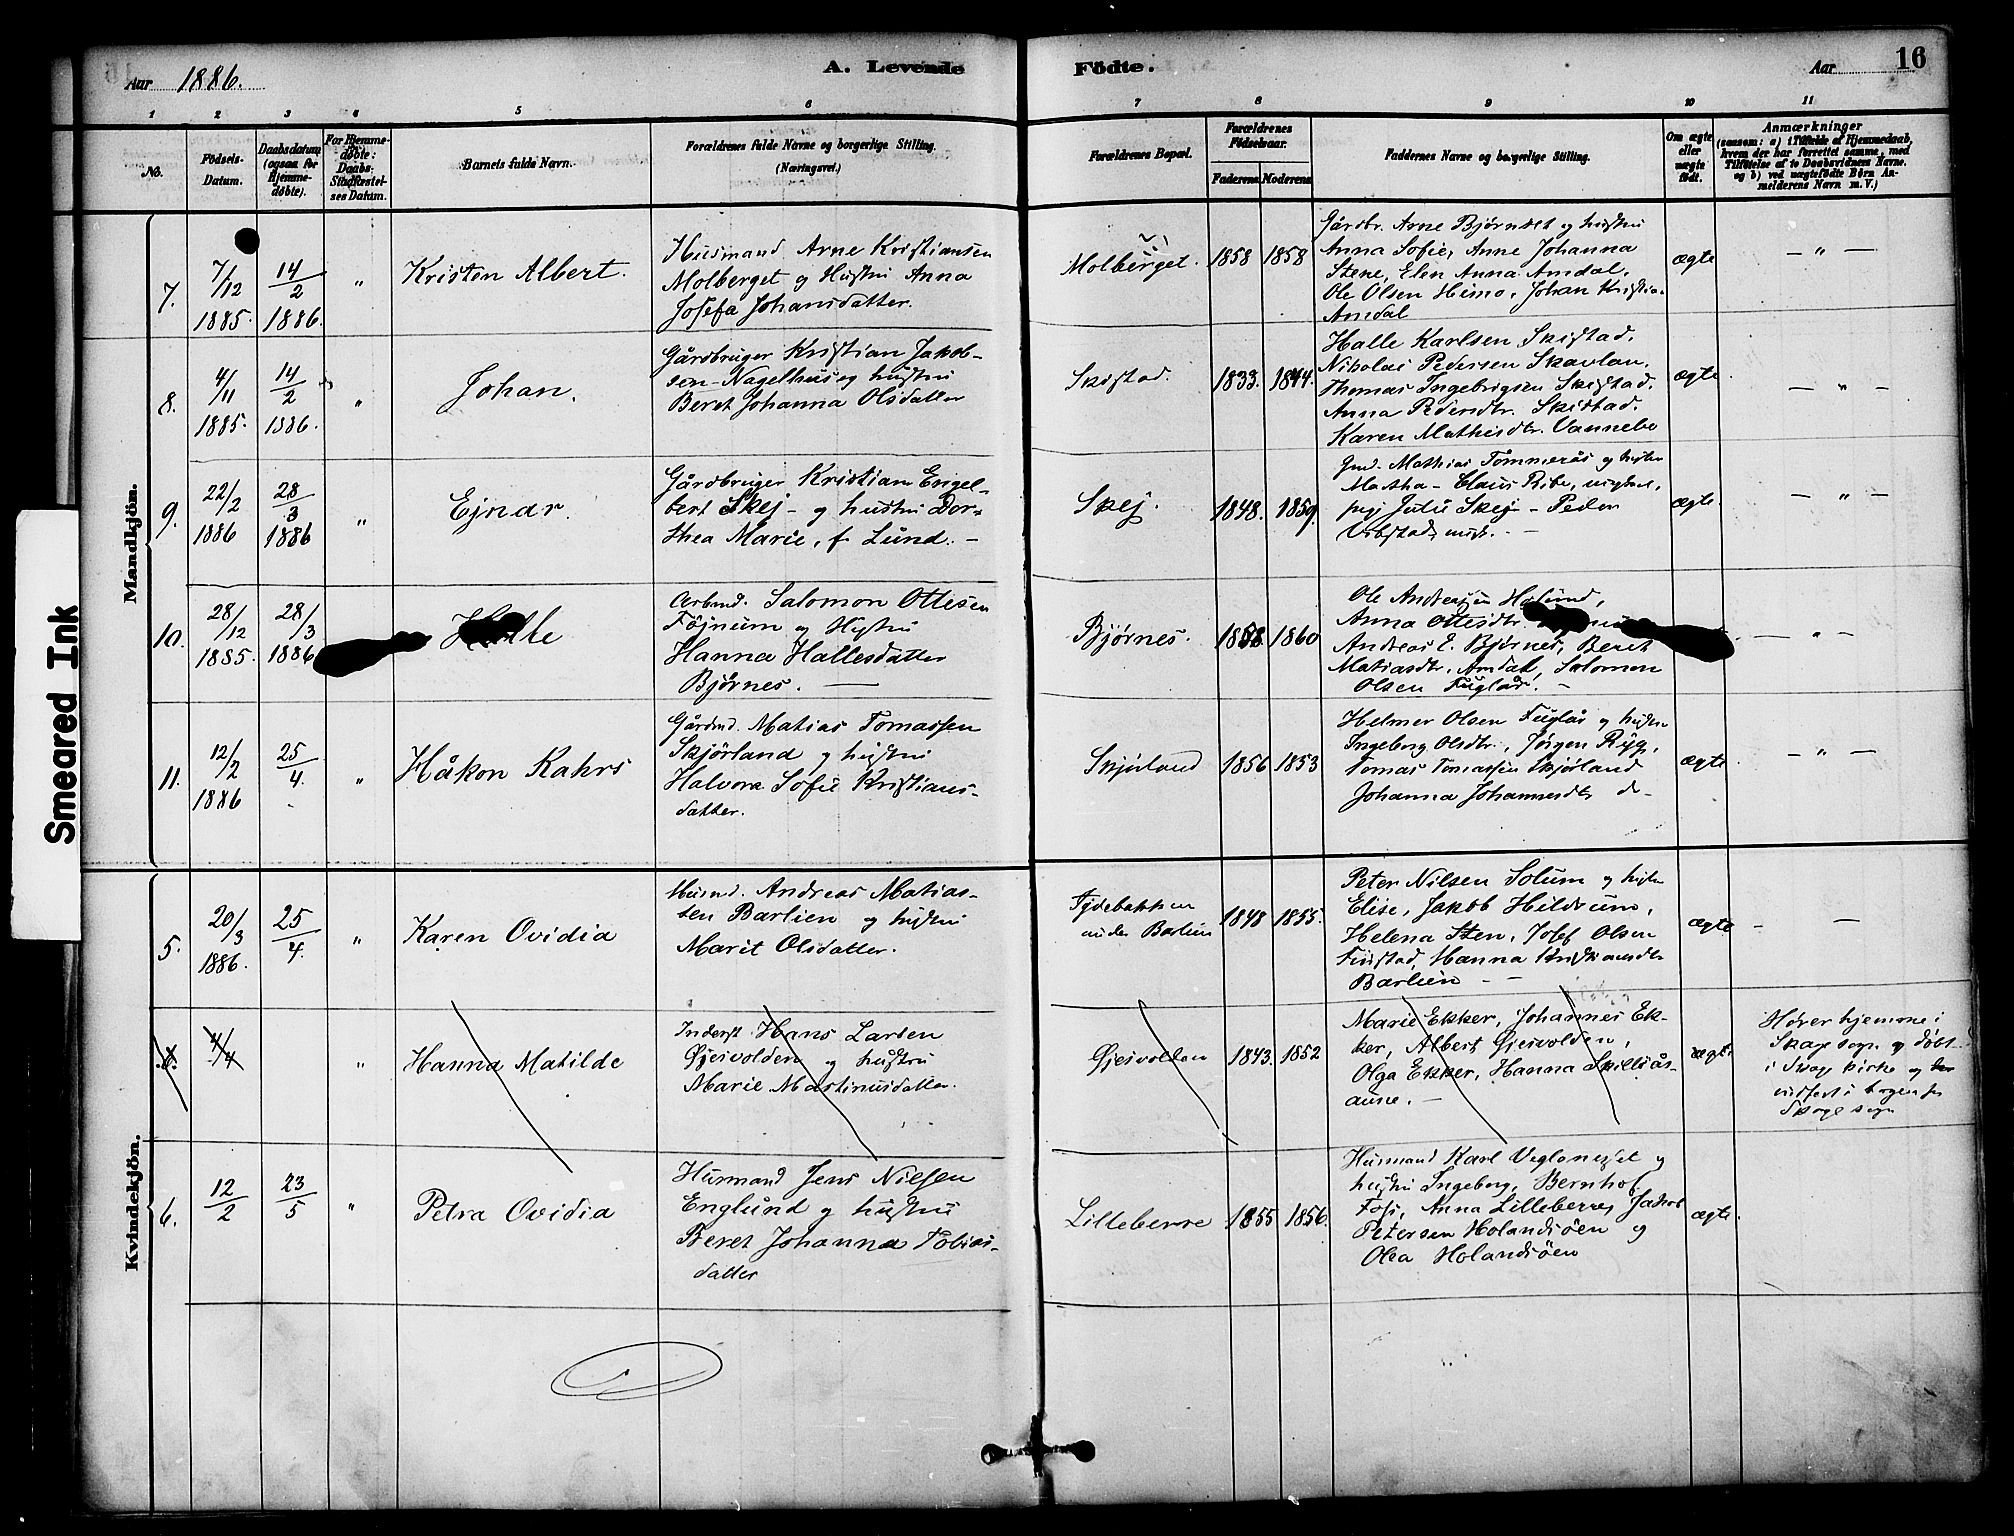 Aar 1886.
A. Levende Födte.
Aar
16
1 2 3 4 5 6 7 8 9 10 11
No.
Födsels-Datum.
Daabsdatum (ogsaa for Hjemmedøbte).
For Hjemmedøbte: Daabs-Stadfæstelses Datum.
Barnets fulde Navn.
Forældrenes fulde Navne og borgerlige Stilling.
(Næringsvei.)
Forældrenes Bopæl.
Forældrenes Födselsaar.
Faderens Moderens
Faddernes Navne og borgerlige Stilling.
Om ægte eller uægte födt.
Anmærkninger
(saasom: a) i Tilfælde af Hjemmedaab, hvem der har forrettet samme, med Tilföielse af to Daabsvidners Navne. og b) ved uægtefödte Börn Anmelderens Navn m. V.)
Smeared Ink
Mandkjön.
7.
7/12 1885.
14/2 1886.
"
Kristen Albert.
Husmand Arne Kristiansen
Molberget og Hustru Anna
Josefa Johansdatter.
Molberget.
1858 1858
Gårdbr. Arne Bjørnset og hustru
Anna Sofie, Anne Johanna
Stene, Elen Anna Amdal,
Ole Olsen Himo, Johan Kristia.
Amdal
ægte
— " —
8.
4/11 1885.
14/2 1886.
"
Johan.
Gårdbruger Kristian Jakob-
sen Nagelhus og hustru
Beret Johanna Olsdatter
Skistad.
1833. 1844.
Halle Karlsen Skistad.
Nikolai Pedersen Skavlan.
Thomas Ingebrigsen Skistad.
Anna Pedersdtr. Skistad.
Karen Mathisdtr. Vannebo
ægte.
— " —
9.
22/2 1886
28/3 1886
"
Ejnar.
Gårdbruger Kristian Engel-
bert Skej - og hustru Dor-
thea Marie, f. Lund. —
Skej.
1848. 1859.
Mathias Tømmerås og
Martha - Claus Ribe,
Skej - Peder
ægte.
— " —
10.
28/12 1885.
28/3 1886
Halle
Arbmd. Salomon Ottesen
Føjnum og Hustru
Hanna Hallesdatter
Bjørnes. —
Bjørnes.
1858 1860
Ole Andersen
Anna Ottesdtr.
Andreas E. Bjørnes, Beret
Matiasdtr. Amdal, Salomon
Olsen Fuglår. —
— " —
11.
12/2 1886
25/4.
"
Håkon Kahrs
Gårdmd. Matias Tomassen
Skjørland og hustru
Halvora Sofie Kristians-
datter.
Skjørland
1856 1853
Helmer Olsen Fuglår og hustru
Ingeborg Olsdtr., Jørgen Ryg,
Tomas Tomassen Skjørland
Johanna Johannesdtr do-
ægte
— " —
Kvindekjön.
5.
20/3 1886.
25/4.
"
Karen Ovidia
Husmd. Andreas Matias-
sen Barlien og hustru
Marit Olsdatter.
Tydebakken
under Barlien
1848 1855.
Peter Nilsen Solum og hustru
Elise, Jakob Hildrum,
Helena Sten, Josef Olsen
Finstad, Hanna Kristiansdtr
Barlien —
ægte
—
6.
4/4
"
Hanna Matilde
Inderst Hans Larsen
Gjesvolden og hustru
Marie Martinusdatter.
Gjesvolden
1843. 1852
Marie Ekker, Johannes Ek-
ker, Albert Gjesvolden,
Olga Ekker, Hanna Skillås-
aune. —
ægte
Hører hjemme i
Skage sogn og døbt
i Skage kirke og
indført i bogen for
Skage sogn
6.
12/2
23/5
"
Petra Ovidia
Husmand Jens Nielsen
Englund og hustru
Beret Johanna Tobias-
datter
Lilleberre
1855 1856.
Husmand Karl Veglaneset og
hustru Ingeborg, Bernhof
Foss, Anna Lilleberre, Jakob
Petersen Holandsöen og
Olea Holandsöen
ægte.